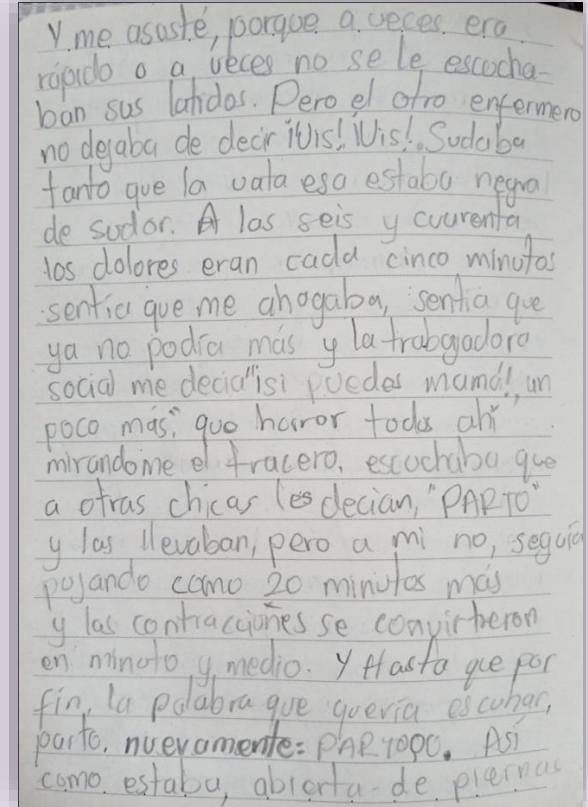 Y me asusté, porque a veces era
rápido o a veces no se le escocha-
ban sus latidos. Pero el otro enfermero
no dejaba de decir ¡Vis! ¡Vis!. Sudaba
tanto que la vata esa estaba negra
de sudor. A las seis y cuarenta
los dolores eran cada cinco minutos
sentía que me ahogaba, sentia que
ya no podía más y la trabajadora
social me decia "¡si puedes mamá!, un
poco más", que horror todos ahí
mirandome el tracero. escochaba que
a otras chicas les decian, "PARTO"
y las llevaban, pero a mi no, seguía
pujando como 20 minutos más
y las contracciones se convirtieron
en minoto y medio. Y Hasta que por
fin, la palabra que quería escuhar,
parto. nuevamente: PARTOOO. Así
como estaba, abierta de piernas